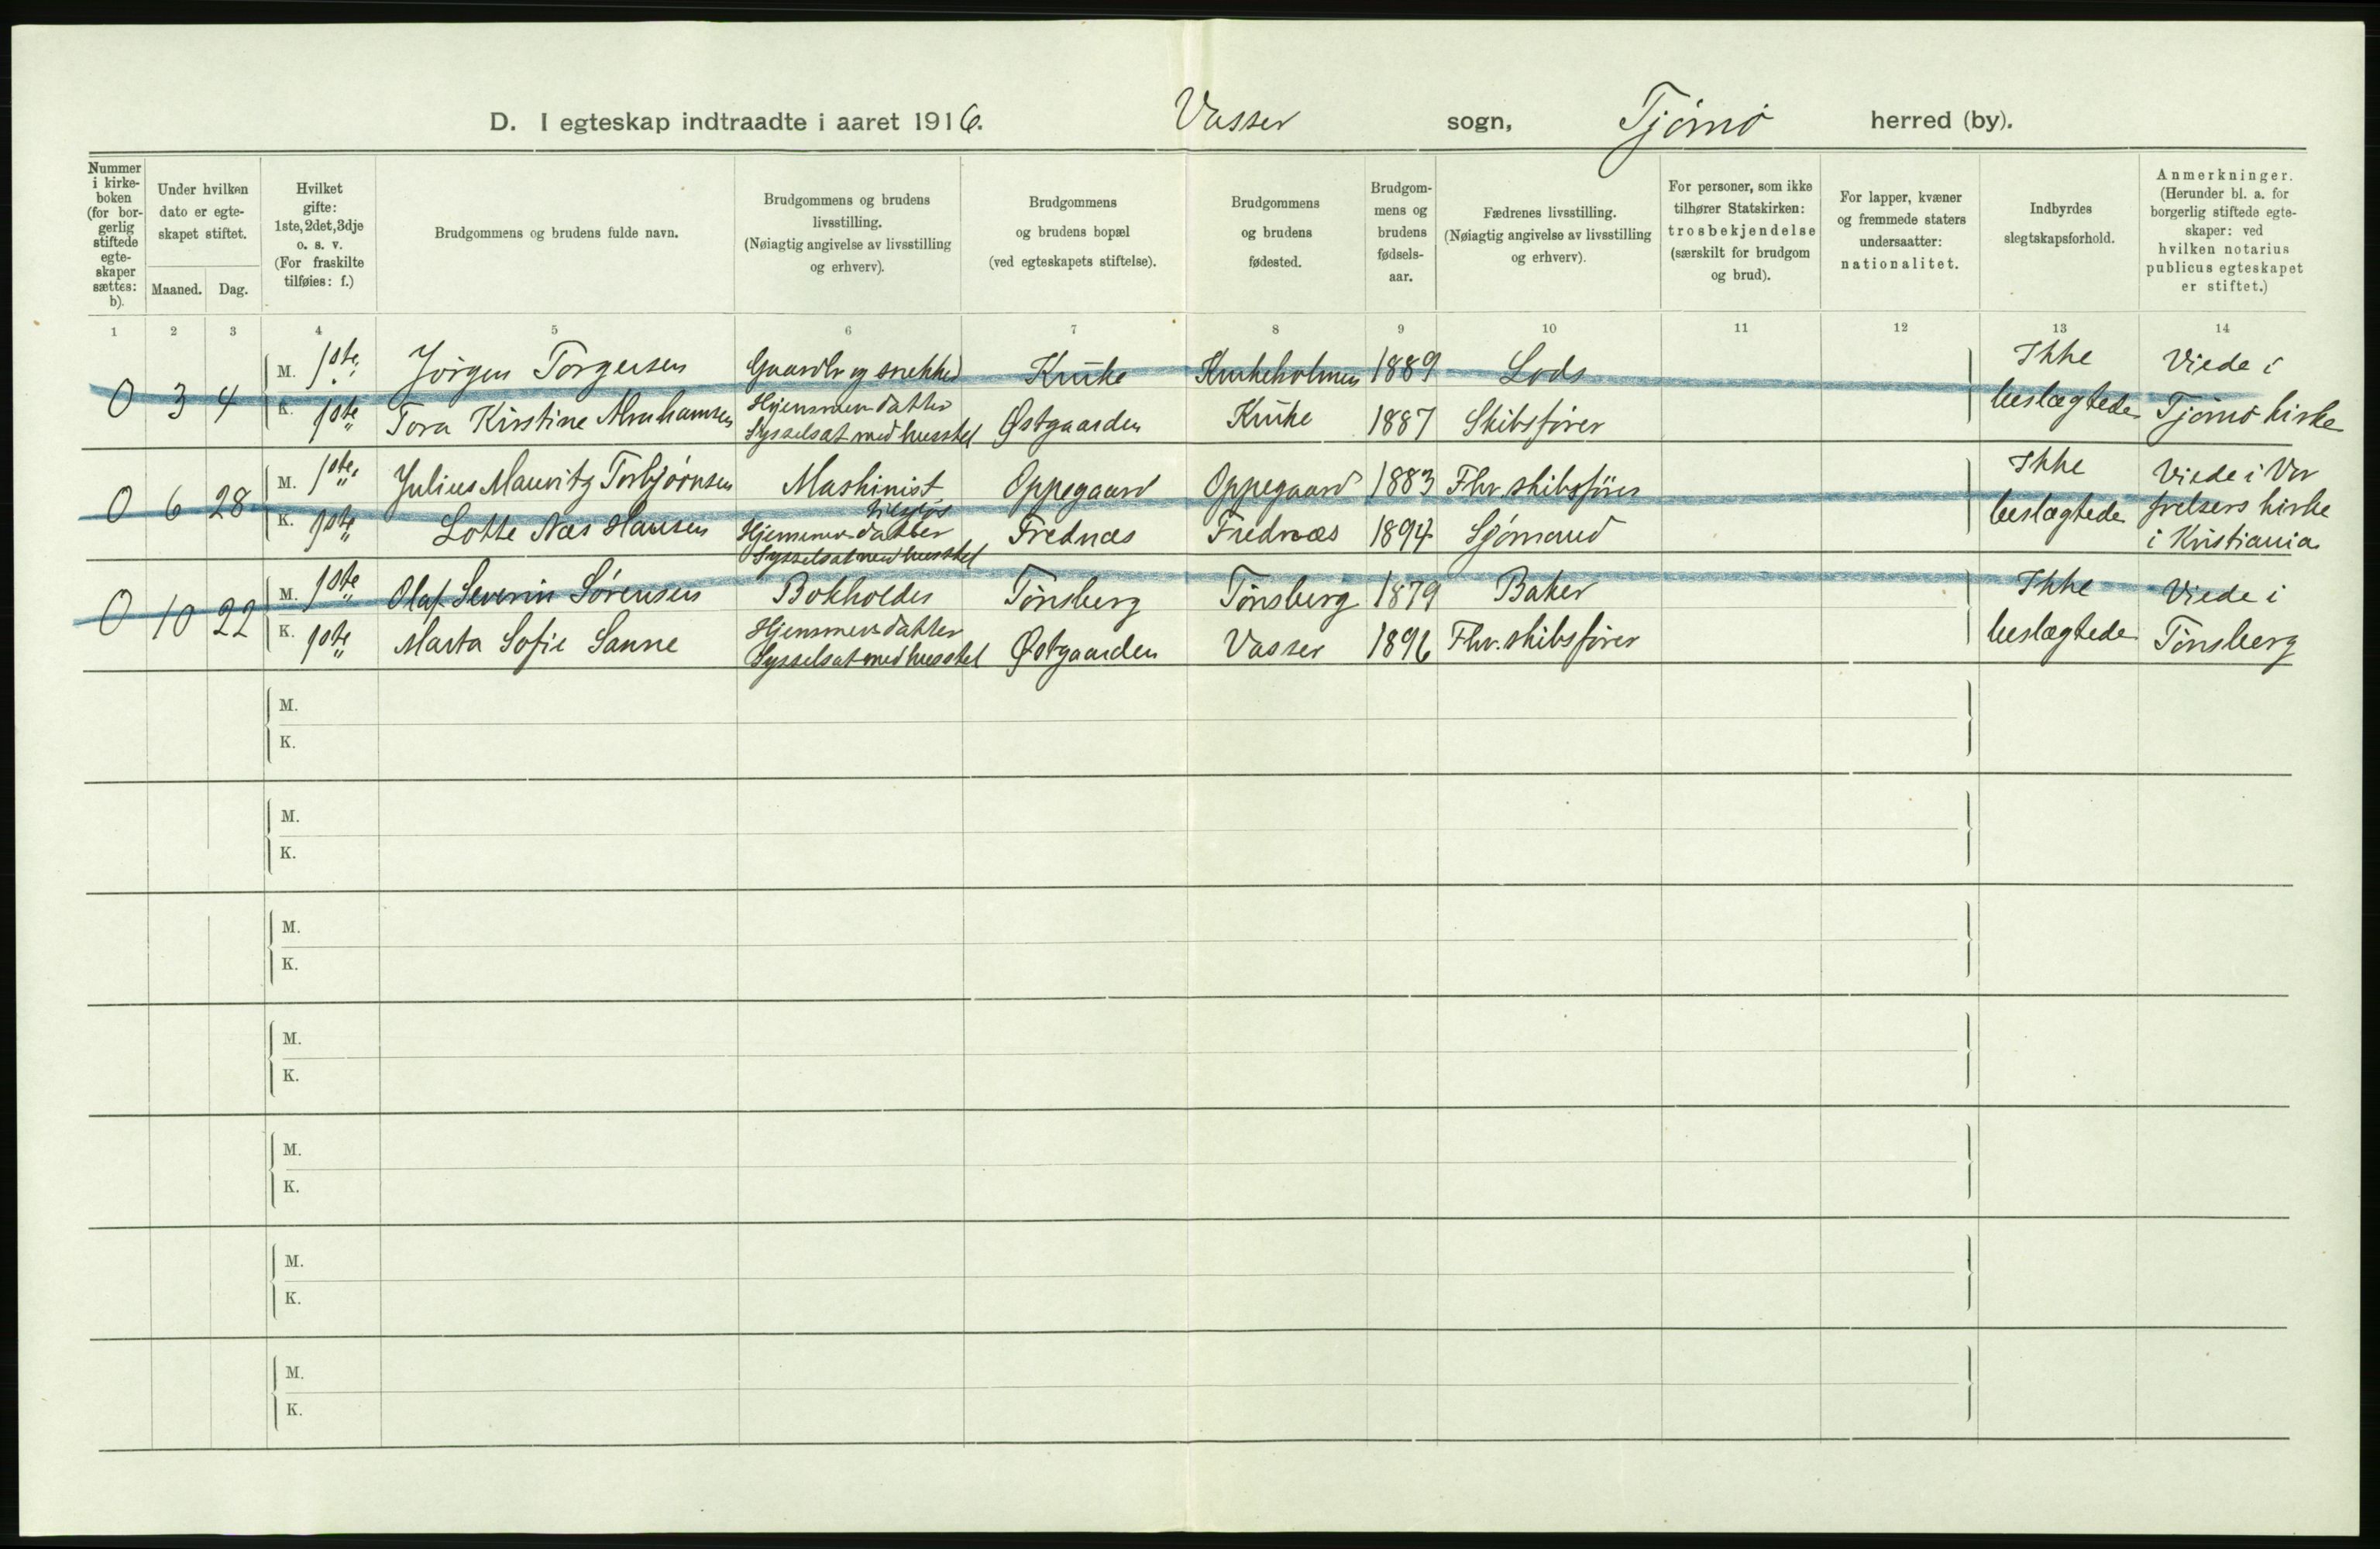 D. I egteskap indtraadte i aaret 1916. Vasser sogn, Tjømø herred (by).
Nummer
i kirke-
boken
(for bor-
gerlig
stiftede
egte-
skaper
sættes:
b).
Under hvilken
dato er egte-
skapet stiftet.
Maaned. Dag.
Hvilket
gifte:
1ste, 2det, 3dje
o. s. v.
(For fraskilte
tilføies: f.)
Brudgommens og brudens fulde navn.
Brudgommens og brudens
livsstilling.
(Nøiagtig angivelse av livsstilling
og erhverv).
Brudgommens
og brudens bopæl
(ved egteskapets stiftelse).
Brudgommens
og brudens
fødested.
Brudgom-
mens og
brudens
fødsels-
aar.
Fædrenes livsstilling.
(Nøiagtig angivelse av livsstilling
og erhverv).
For personer, som ikke
tilhører Statskirken:
trosbekjendelse
(særskilt for brudgom
og brud).
For lapper, kvæner
og fremmede staters
undersaatter:
nationalitet.
Indbyrdes
slegtskapsforhold.
Anmerkninger.
(Herunder bl. a. for
borgerlig stiftede egte-
skaper: ved
hvilken notarius
publicus egteskapet
er stiftet.)
1 2 3 4 5 6 7 8 9 10 11 12 13 14
0 3 4
M. 1ste Jørgen Torgersen Gaardbr og snekker Kruke Krukeholmen 1889 Lods Ikke Viede i
K. 1ste Tora Kirstine Abrahamsen Hjemmev. datter
Sysselsat med husstel Østgaarden Kruke 1887 Skibsfører beslægtede Tjømø kirke
0 6 28
M. 1ste Julius Mauritz Torbjørnsen Maskinist
tilsjøs Oppegaard Oppegaard 1883 Fhv. skibsfører Ikke Viede i Vor
K. 1ste Lotte Næs Hansen Hjemmev. datter
Sysselsat med husstel Frednæs Frednæs 1894 Sjømand beslægtede frelsers kirke
i Kristiania
0 10 22
M. 1ste Olaf Severin Sørensen Bokholder Tønsberg Tønsberg 1879 Baker Ikke Viede i
K. 1ste Marta Sofie Sanne Hjemmev. datter
Sysselsat med husstel Østgaarden Vasser 1896 Fhv. skibsfører beslægtede Tønsberg
M.
K.
M.
K.
M.
K.
M.
K.
M.
K.
M.
K.
M.
K.